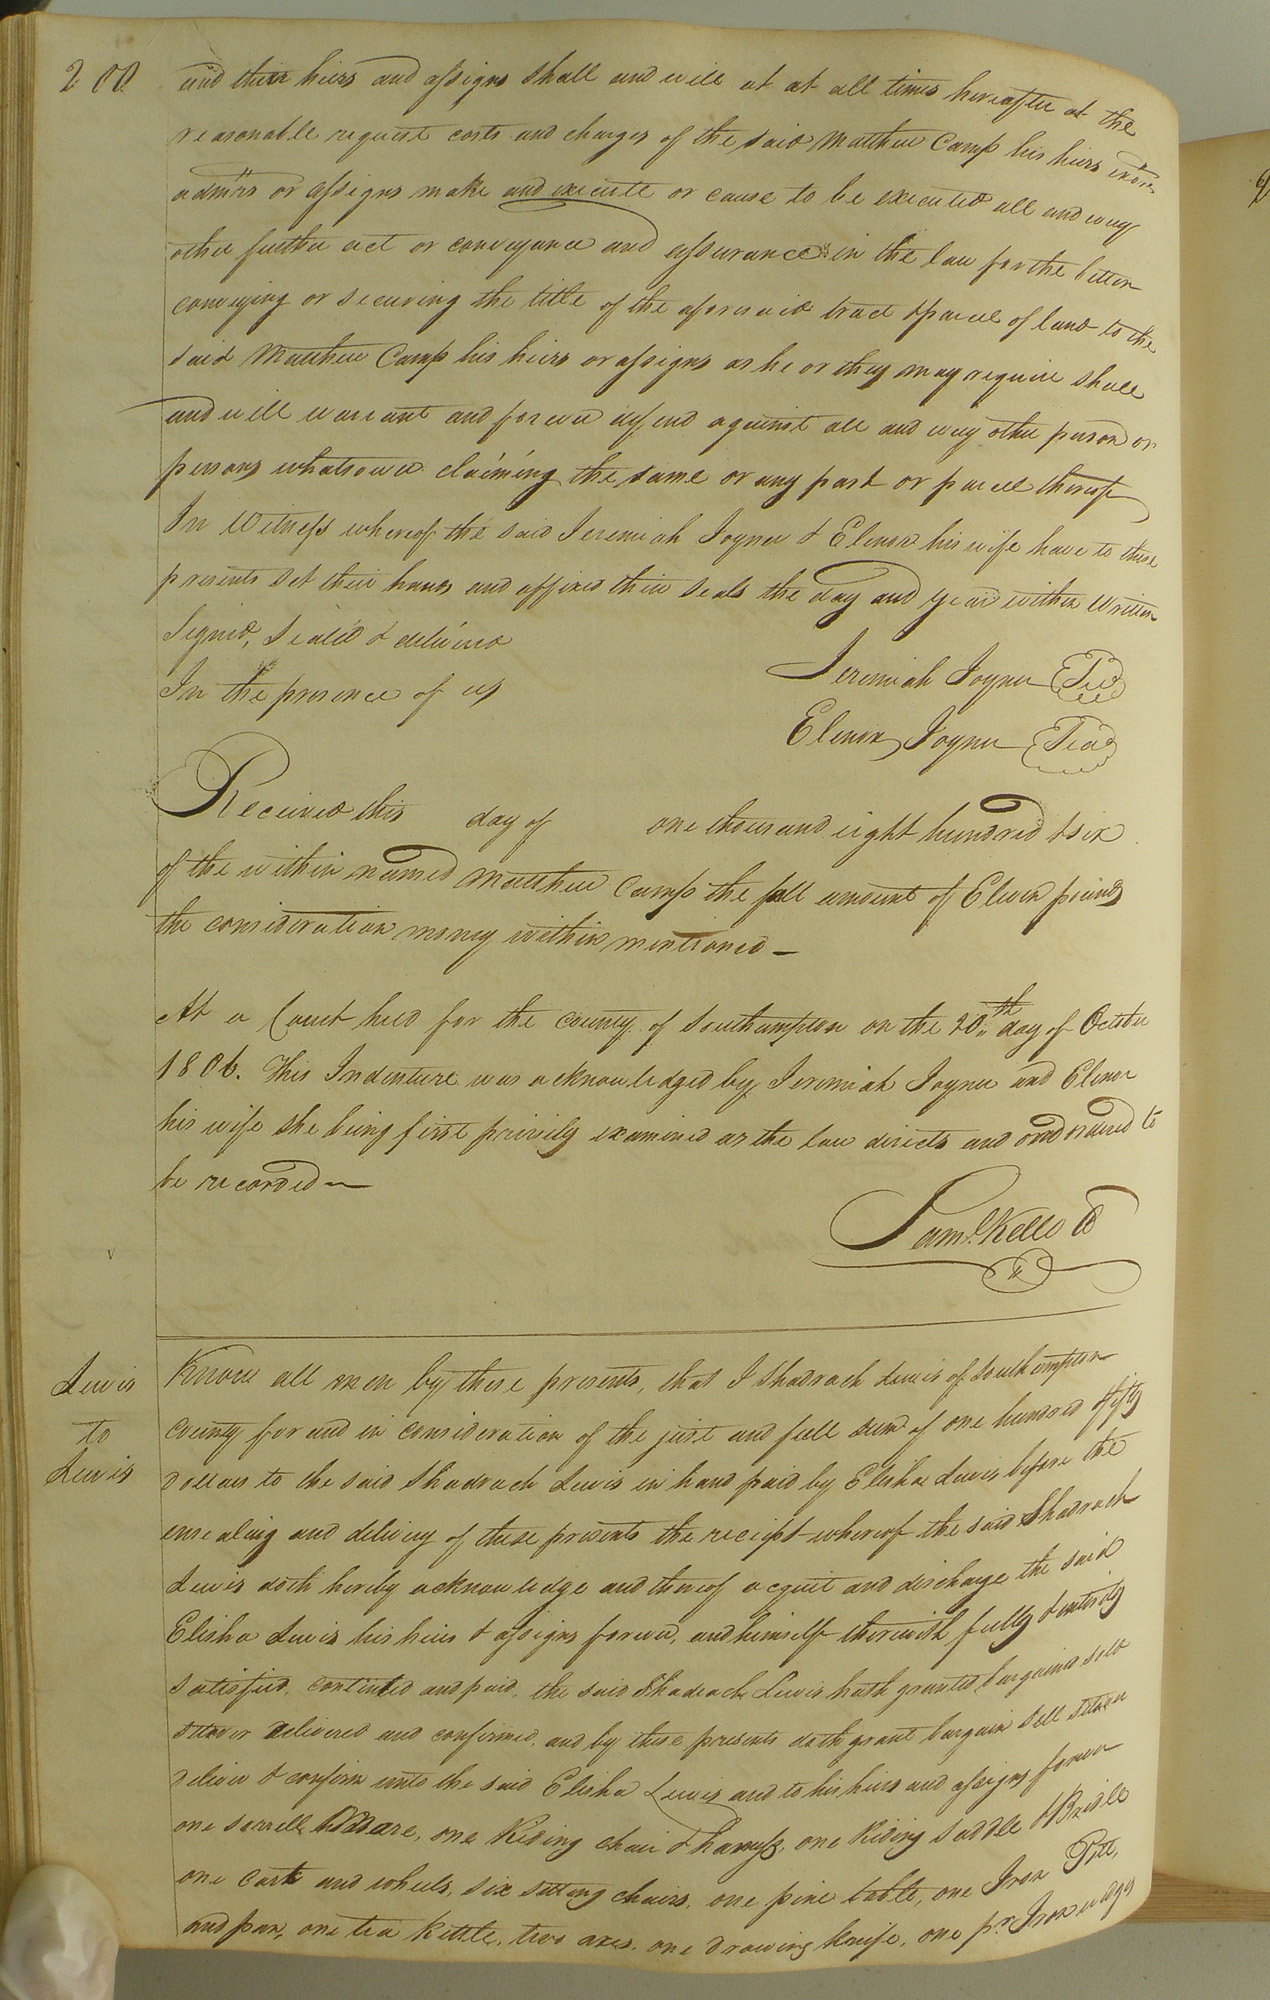 200
and their heirs and assigns shall and will at at all times hereafter at the
reasonable request costs and charges of the said Matthew Camp his heirs exors
admrs or assigns make and execute or cause to be executed all and every
other further act or conveyance and assurances in the law for the better
conveying or securing the title of the aforesaid tract & parcel of land to the
said Matthew Camp his heirs or assigns as he or they may require shall
and will warrant and forever defend against all and every other person or
persons whatsoever claiming the same or any part or parcell thereof
In Witness whereof the said Jeremiah Joyner & Elenor his wife have to these
presents set their hands and affixed their seals the day and year within written
Signed, Sealed & delivered
In the presence of us
Jeremiah Joyner Seal
Elenor Joyner Seal
Received this day of one thousand eight hundred & six
of the within named Matthew Camp the full amount of Eleven pounds
the consideration money within mentioned —
At a Court held for the county of Southampton on the 20th day of October
1806. This Indenture was acknowledged by Jeremiah Joyner and Elenor
his wife she being first privily examined as the law directs and ordered to
be recorded —
Saml. Kello C
Lewis
to
Lewis
Know all men by these presents, that I Shadrach Lewis of Southampton
county for and in consideration of the just and full sum of one hundred & fifty
Dollars to the said Shadrach Lewis in hand paid by Elisha Lewis before the
ensealing and delivery of these presents the receipt whereof the said Shadrach
Lewis doth hereby acknowledge and thereof acquit and discharge the said
Elisha Lewis his heirs & assigns forever, and himself therewith fully & entirely
satisfied, contented and paid, the said Shadrach Lewis hath granted, bargained sold
delivered and confirmed, and by these presents doth grant bargain sell
deliver & confirm unto the said Elisha Lewis and to his heirs and assigns forever
one sorrell Mare, one Riding chair & harness, one Riding Saddle & Bridle
one cart and wheels, six sitting chairs, one pine table, one Iron Pott,
and pan, one tea kettle, two axes, one drawing knife, one pr. Iron wedges